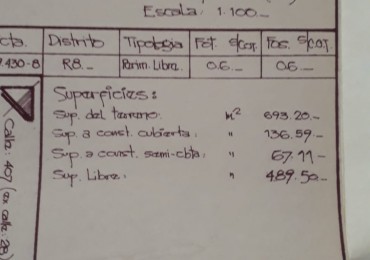 Escala: 1:100.-
cta. Distrito Tipologia Fot. s/COT. Fos. s/COT.
430-8 R8.- Parim. Libre. 0.6.- 0.6.-
Superficies:
Sup. del terreno. m² 693.20.-
Sup. a const. cubierta. " 136.59.-
Sup. a const. semi-cbta. " 67.11.-
Sup. Libre. " 489.50.-
Calle: 407 (ex calle: 28)